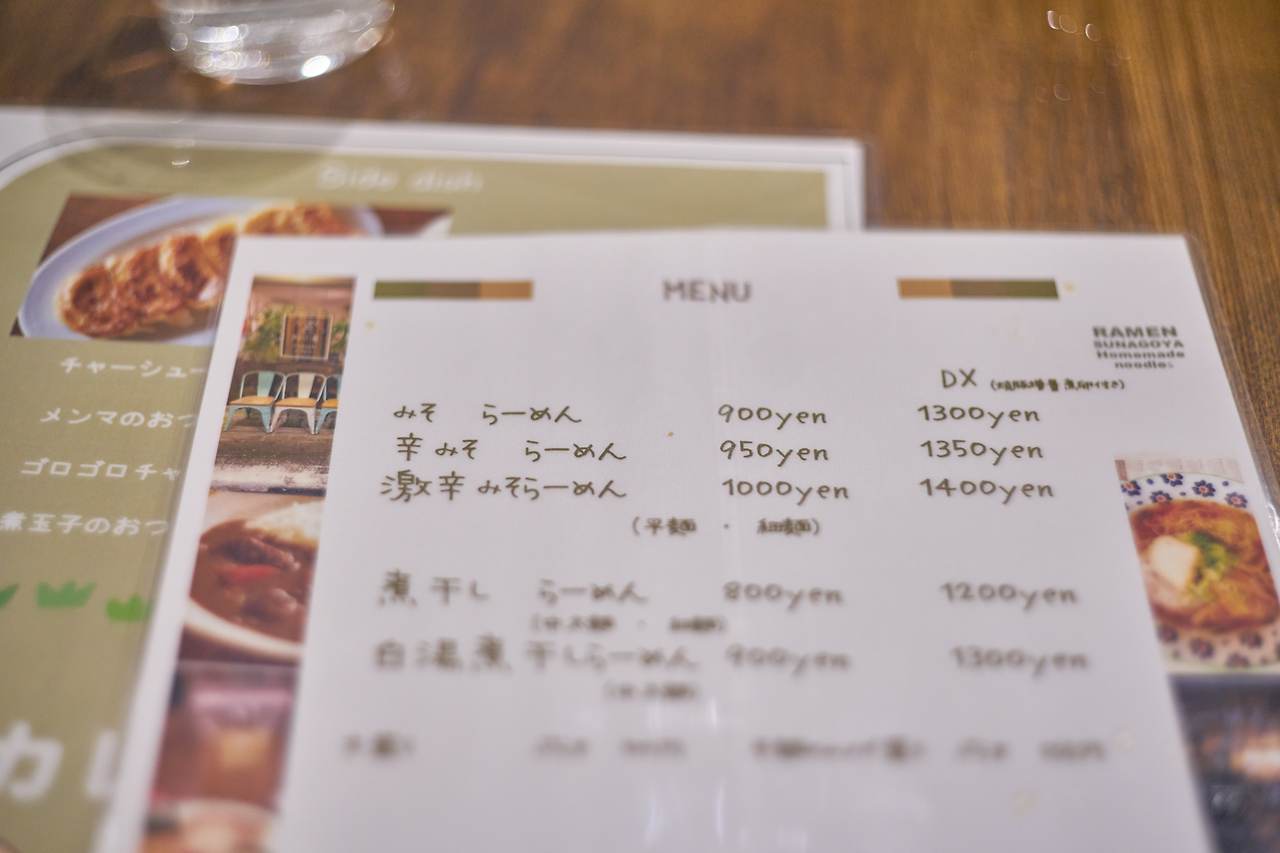 Side dish
チャーシュー
メンマのおつ
ゴロゴロチャ
煮玉子のおつ
カレ
MENU
RAMEN
SUNAGOYA
Homemade
noodles
DX
みそ らーめん 900yen 1300yen
辛みそ らーめん 950yen 1350yen
激辛みそらーめん 1000yen 1400yen
(平麺 ・ 細麺)
煮干し らーめん 800yen 1200yen
白湯煮干しらーめん 900yen 1300yen